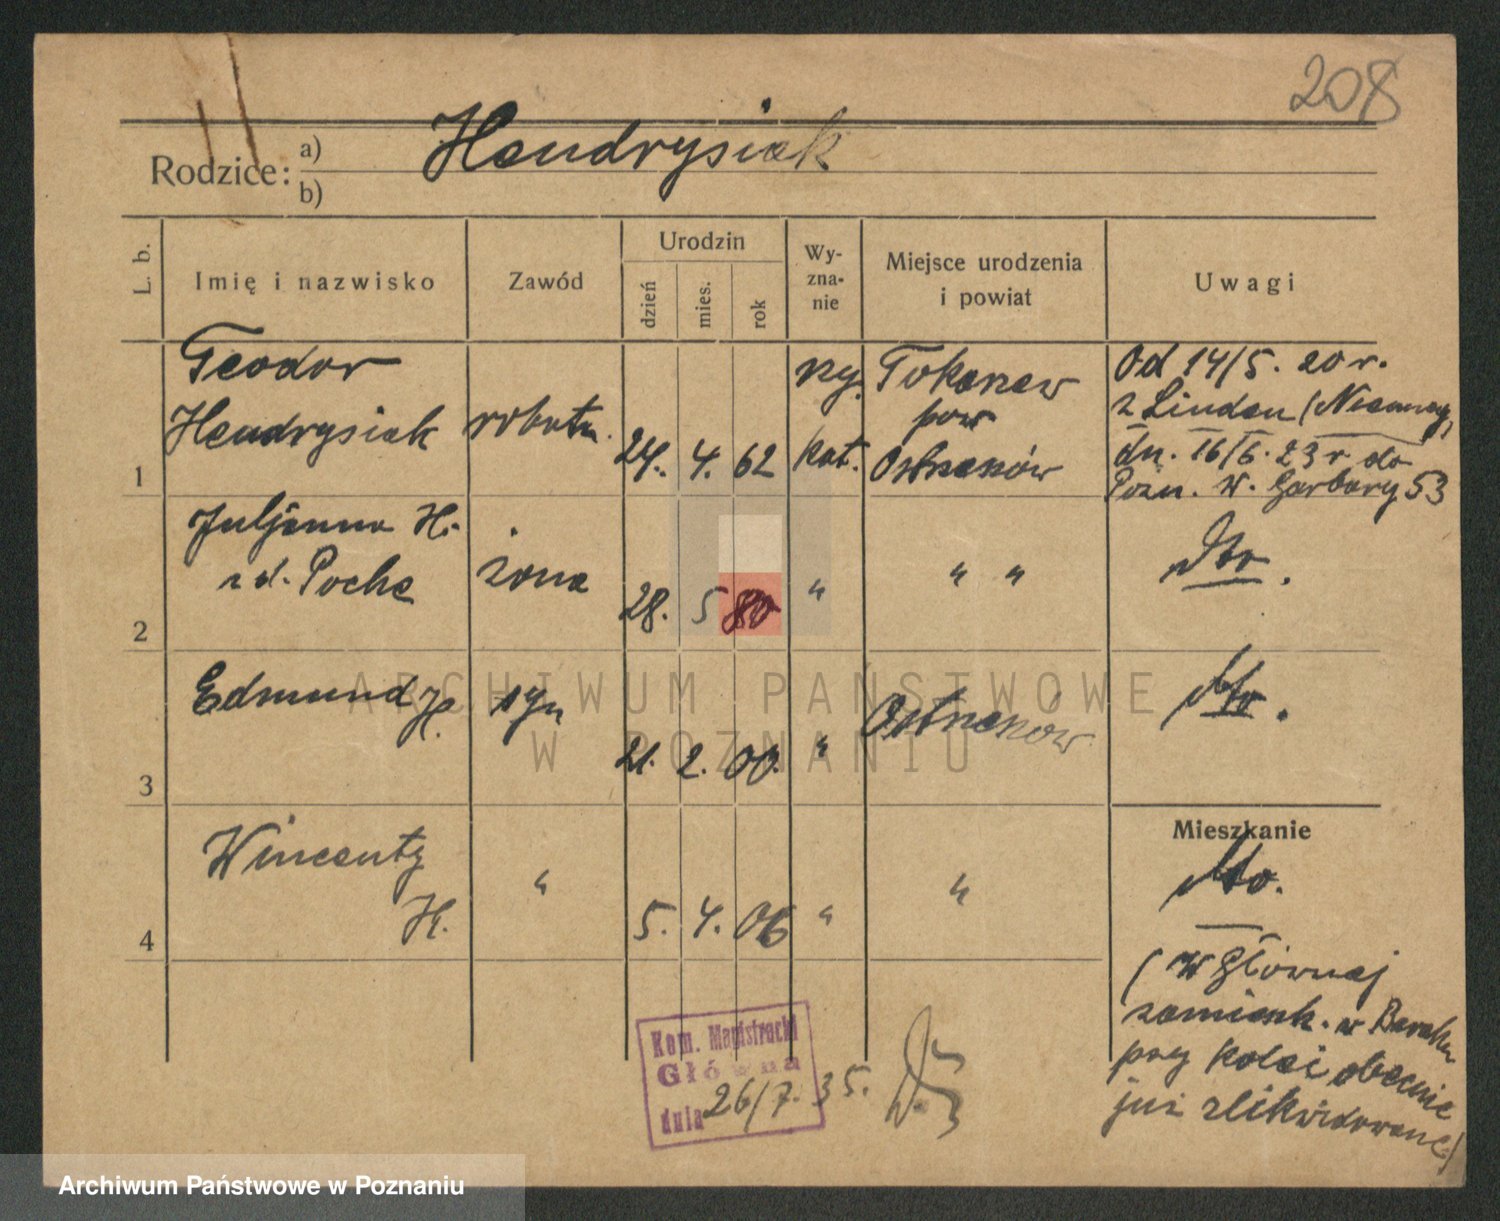 208
Rodzice: a) Hendrysiak
b)
L. b.
Imię i nazwisko
Zawód
Urodzin
dzień
mies.
rok
Wy-
zna-
nie
Miejsce urodzenia
i powiat
Uwagi
1
Teodor
Hendrysiak
robotn.
24. 4. 62
rzy.
kat.
Tokarzew
pow
Ostrzeszów
Od 14/5. 20 r.
z Linden (Niemcy)
dn. 16/6. 23 r do
Pozn. W. Garbary 53
2
Juljanna H.
z d. Pocha
żona
28. 5 80
"
" "
Dto.
3
Edmund H.
syn
21. 2. 00.
"
Dto.
4
Wincenty
H.
"
5. 4. 06
"
"
Mieszkanie
Dto.
(w Głównej
zamieszk. w Baraku
przy kolei obecnie
już zlikwidowane)
Kom. Magistracki
Główna
dnia 26/7. 35.
ARCHIWUM PAŃSTWOWE
W POZNANIU
Archiwum Państwowe w Poznaniu